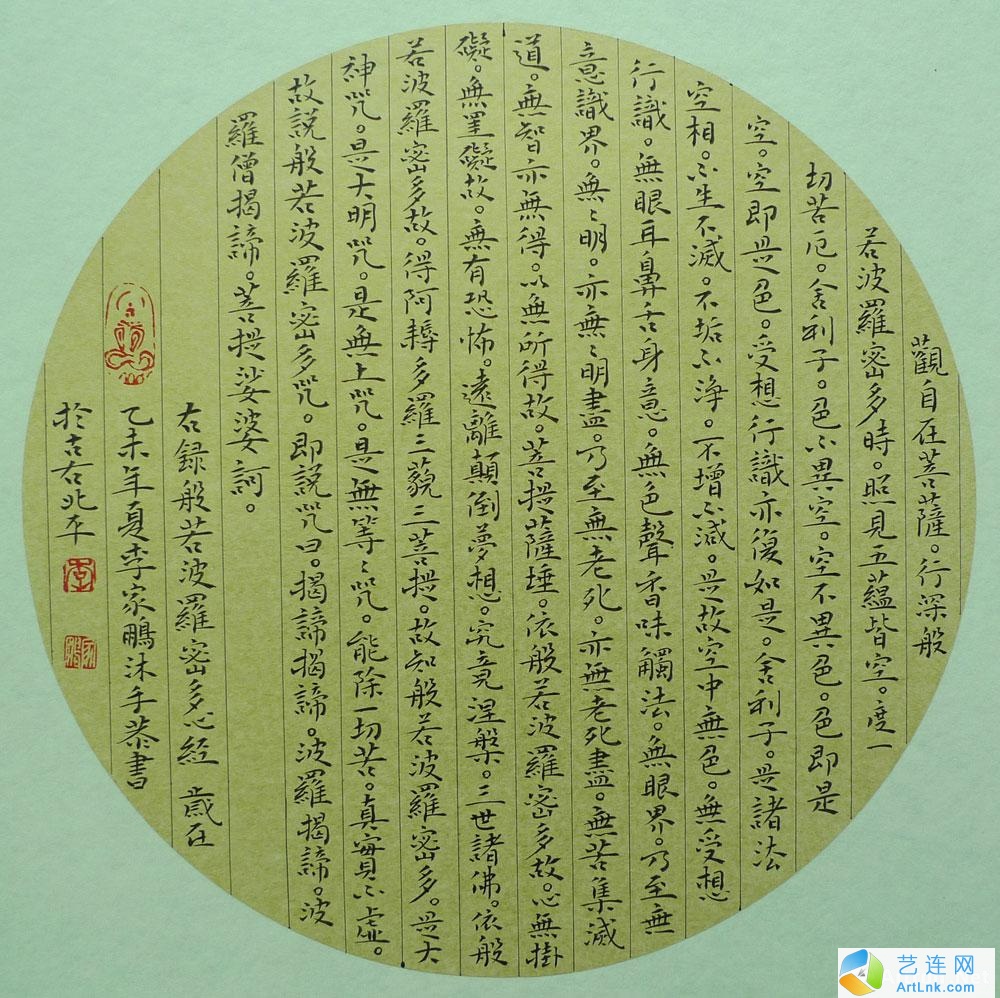 觀自在菩薩。行深般
若波羅密多時。照見五蘊皆空。度一
切苦厄。舍利子。色不異空。空不異色。色即是
空。空即是色。受想行識亦復如是。舍利子。是諸法
空相。不生不滅。不垢不净。不增不減。是故空中無色。無受想
行識。無眼耳鼻舌身意。無色聲香味觸法。無眼界。乃至無
意識界。無〻明。亦無〻明盡。乃至無老死。亦無老死盡。無苦集滅
道。無智亦無得。以無所得故。菩提薩埵。依般若波羅密多故。心無掛
礙。無罣礙故。無有恐怖。遠離顛倒夢想。究竟涅槃。三世諸佛。依般
若波羅密多故。得阿耨多羅三藐三菩提。故知般若波羅密多。是大
神咒。是大明咒。是無上咒。是無等〻咒。能除一切苦。真實不虛。
故說般若波羅密多咒。即說咒曰。揭諦揭諦。波羅揭諦。波
羅僧揭諦。菩提娑婆訶。
右録般若波羅密多心經 歲在
乙未年夏李家鵬沐手恭書
於古右北平
李
艺连网
ArtLnk.com